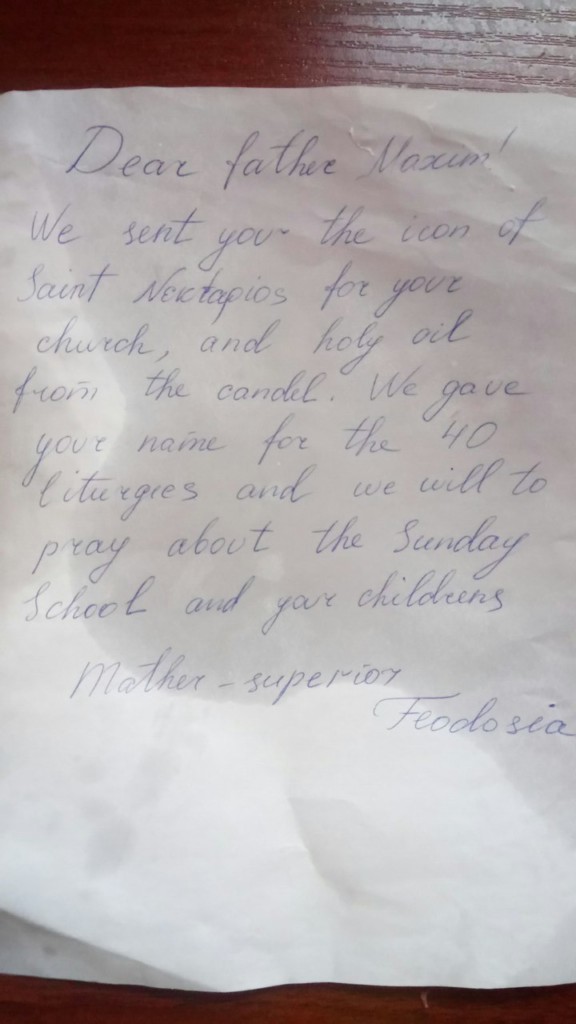 Dear father Maxum!
We sent you the icon of
Saint Nektapios for your
church, and holy oil
from the candel. We gave
your name for the 40
liturgies and we will to
pray about the Sunday
School and your childrens
Mather-superior
Feodosia